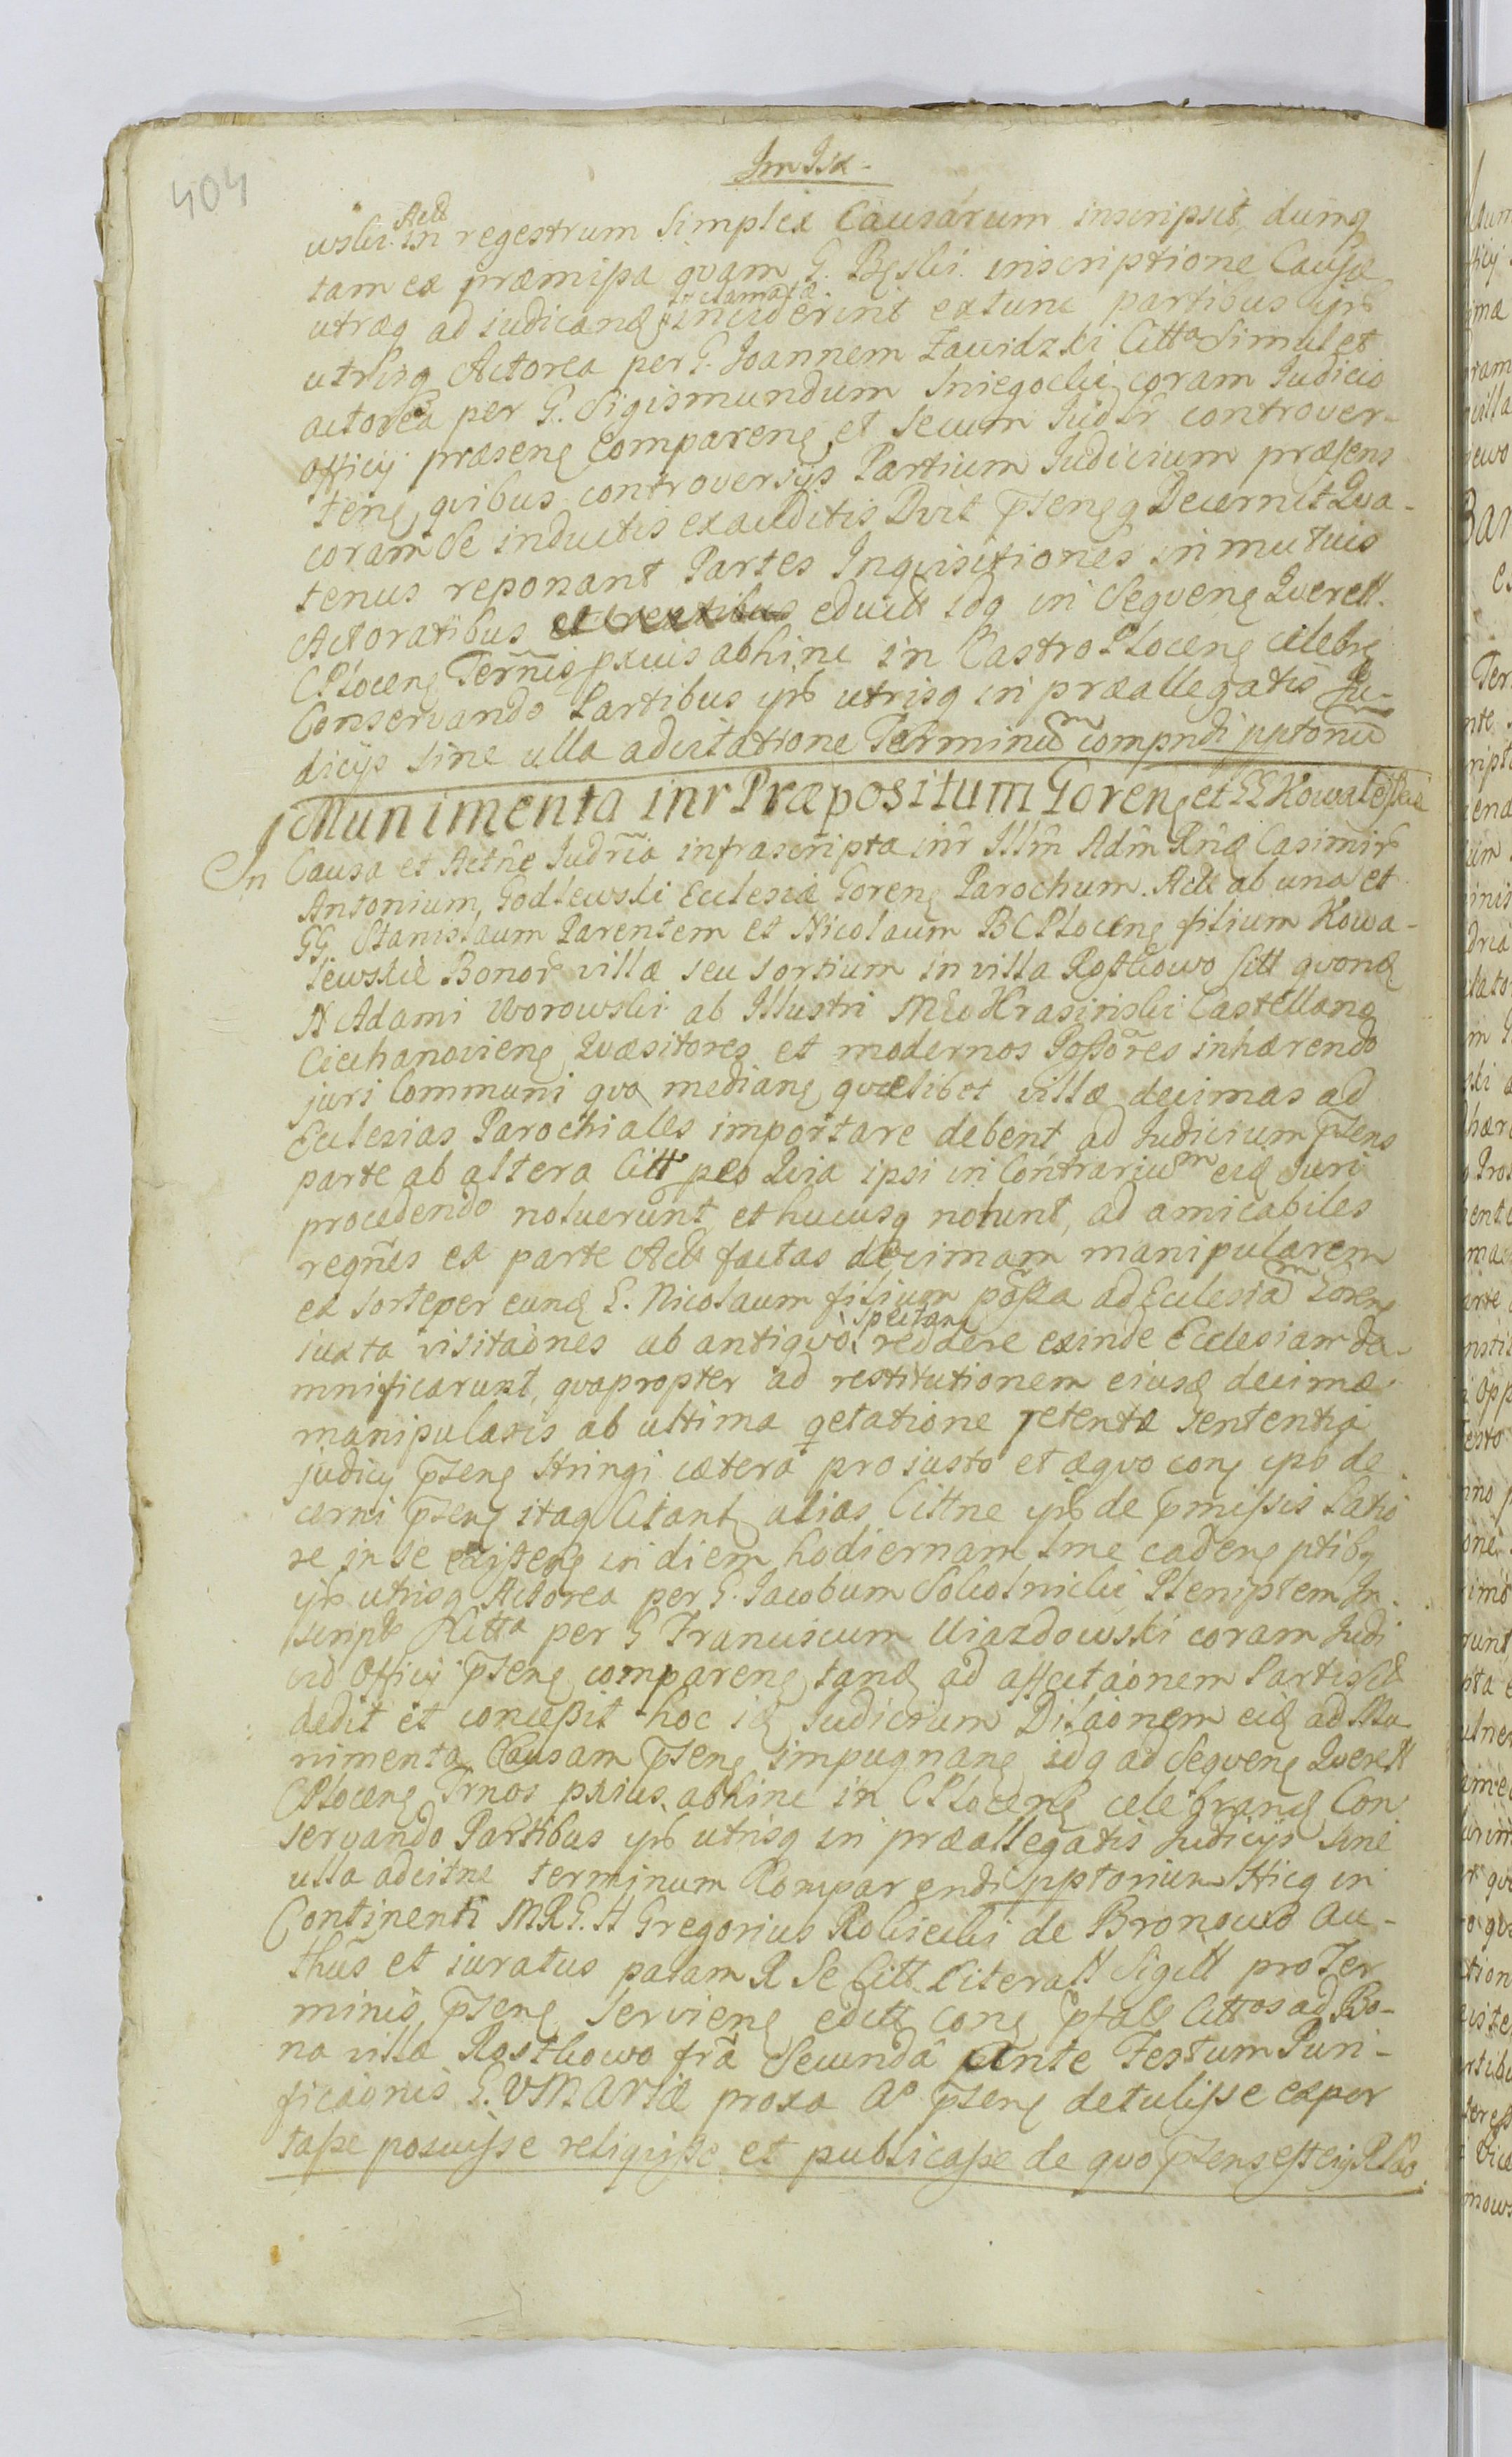 404
uslii Actt in regestrum simplex Causarum inscripsit, dumq
tam ex præmissa qvam G. Bęski inscriptione Causæ
utræq ad iudicand inclamatæ inciderint extunc partibus ipś
utrisq Actorea per G. Joannem Zawidzki Citta Simul et
actorea per G. Sigismundum Sniegocki coram Judicio
officij præsenę Comparenę et Secum controver-
tenę, qvibus controversijs Partium Judicium præsens
coram Se inductis exauditis Dvit p̄senę Decernit Qva-
tenus reponant Partes Inqvisitiones in mutuis
Actoratibus educt idq in Seqvenę Querell.
CPlocenę Ternnis prius abhinc in Castro Plocenę celebrę
Conservando Partibus ipś utrisq in præallegatis Ju-
dicijs sine ulla adcitatione Terminum compndi pptoriu
Munimenta inr Præpositum Gorenę et GG Kowalewskie
In Causa et Actne Judria infrascripta inr Illm Adm Rnd Casimir
Antonium Godlewski Ecclesiæ Gorenę Parochum Actt ab una et
GG. Stanislaum Parentem et Nicolaum BCPlocenę filium Kowa-
lewskie Bonor villæ seu sortium in villa Rostkowo sitt qvond
N Adami Uvorowski ab Illustri Krasinski Castellano
Ciechanovienę Qvæsitores et modernos Possores inhærendo
juri Communi qvo medianę qvælibet villæ decimas ad
Ecclesias Parochiales importare debent ad Judicium p̄sens
parte ab altera Citt peo Qvia ipsi in Contrarium eid Juri
procedendo noluerunt, et hucusq nolunt, ad amicabiles
reqnes ex parte Actt factas decimam manipularem
ex sorte per eund G. Nicolaum filium possa ad Ecclesiam Gorenę
iuxta visitaones ab antiqvo spectanę reddere exinde Ecclesiam da-
mnificarunt, qvapropter ad restitutionem eiusd decimæ
manipularis ab ultima qetatione retentæ sententia
judicij p̄senę stringi cætera pro iusto et æqvo conę ipś de
cerni p̄senę itaq Citant, alias Cittne ipś de p̄missis Latio
re in se existenę in diem hodiernam sme cadenę ptibq
ipś utrisq Actorea per G. Jacobum Sokolnicki Pleniptem In-
script Citta per G Franciscum Uiazdowski coram Judi
cio Officij p̄senę comparenę tand ad affectaonem Partis Citt
dedit et concessit hoc id Judicium Dilaonem eid ad Mu-
nimenta Causam p̄senę impugnanę idq ad Seqvenę Querell
CPlocenę Trnos prius abhinc in CPlocenę celebrand Con
servando Partibus ipś utrisq in præallegatis Judicijs sine
ulla adcitne terminum Comparendi pptorium Hicq in
Continenti M.R.G.H Gregorius Robiecki de Bronowo Au-
thus et iuratus palam R Se Citt Literall Sigill pro Ter
minis p̄senę Servienę editt conę ptall Cittos ad Bo-
na villa Rostkowo fra Secunda Ante Festum Puri-
ficaonis G. V MARIÆ proxa Ao p̄senę detulisse expor
tasse posuisse reliqvisse et publicasse de qvo p̄sens est eius Rlao